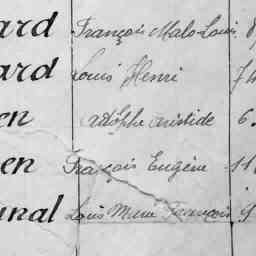 ard François Malo Louis
ard Louis Henri
en Adolphe Aristide 6.
en François Eugène 11
nal Louis Marie François